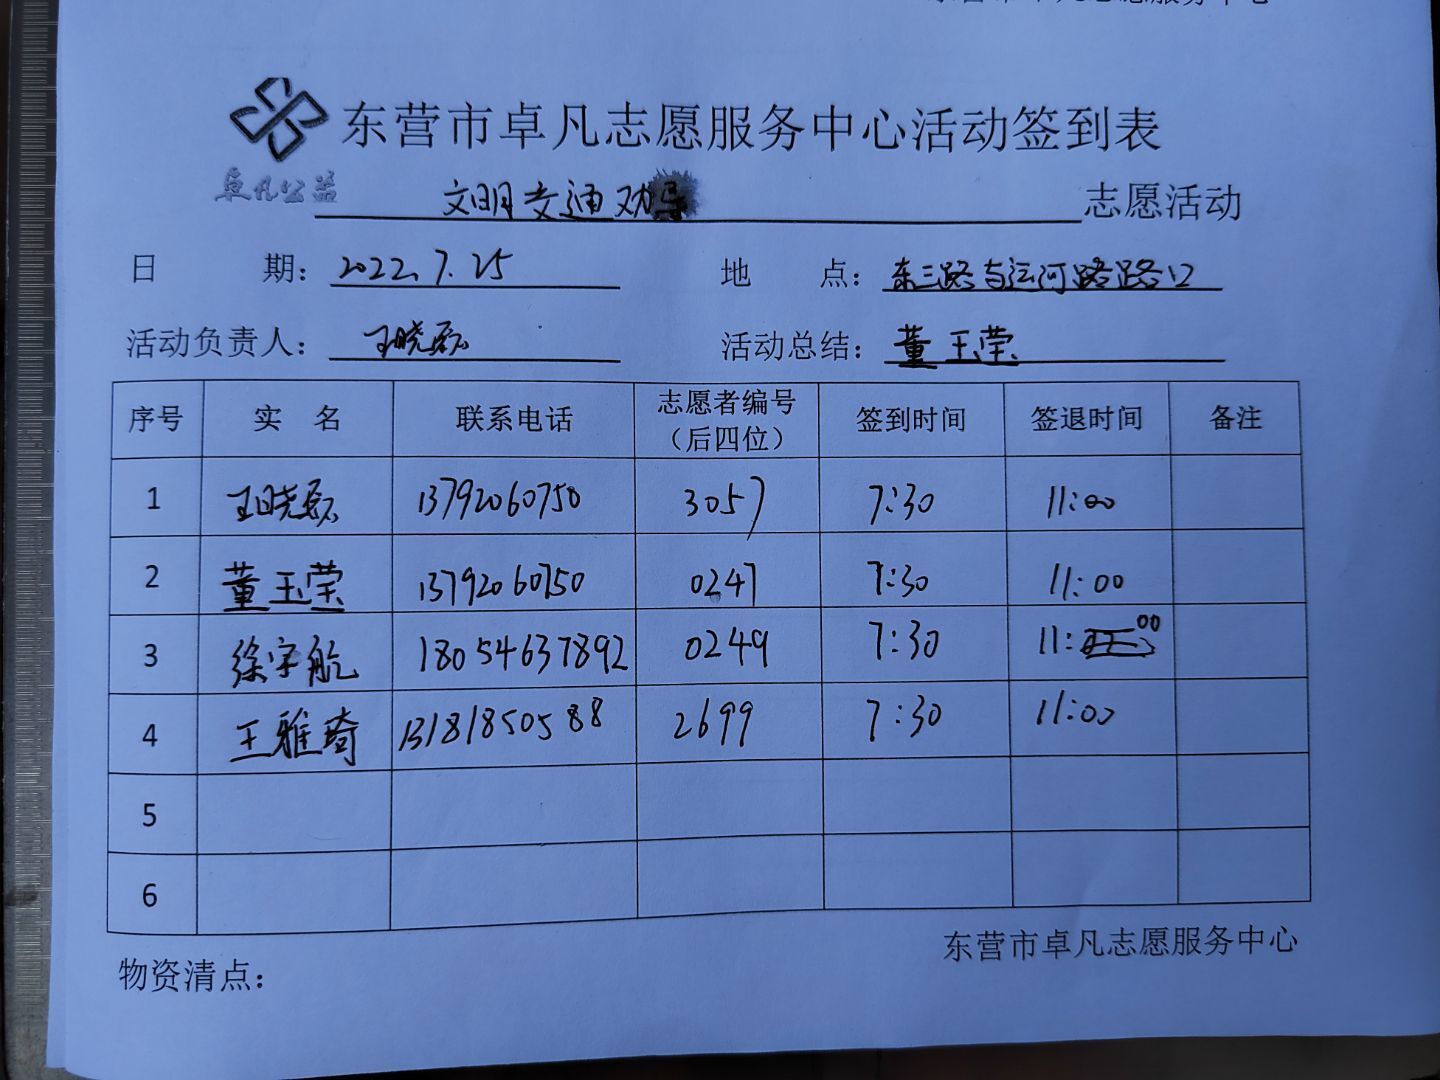 东营市卓凡志愿服务中心
东营市卓凡志愿服务中心活动签到表
卓凡公益
文明交通劝导 志愿活动
日 期：2022.7.25 地 点：东三路与运河路路口
活动负责人：王晓磊 活动总结：董玉莹
序号 实 名 联系电话 志愿者编号（后四位） 签到时间 签退时间 备注
1 王晓磊 13792060750 3057 7:30 11:00
2 董玉莹 13792060750 0247 7:30 11:00
3 徐宇航 18054637892 0249 7:30 11:00
4 王雅琦 13181850588 2699 7:30 11:00
5
6
东营市卓凡志愿服务中心
物资清点：